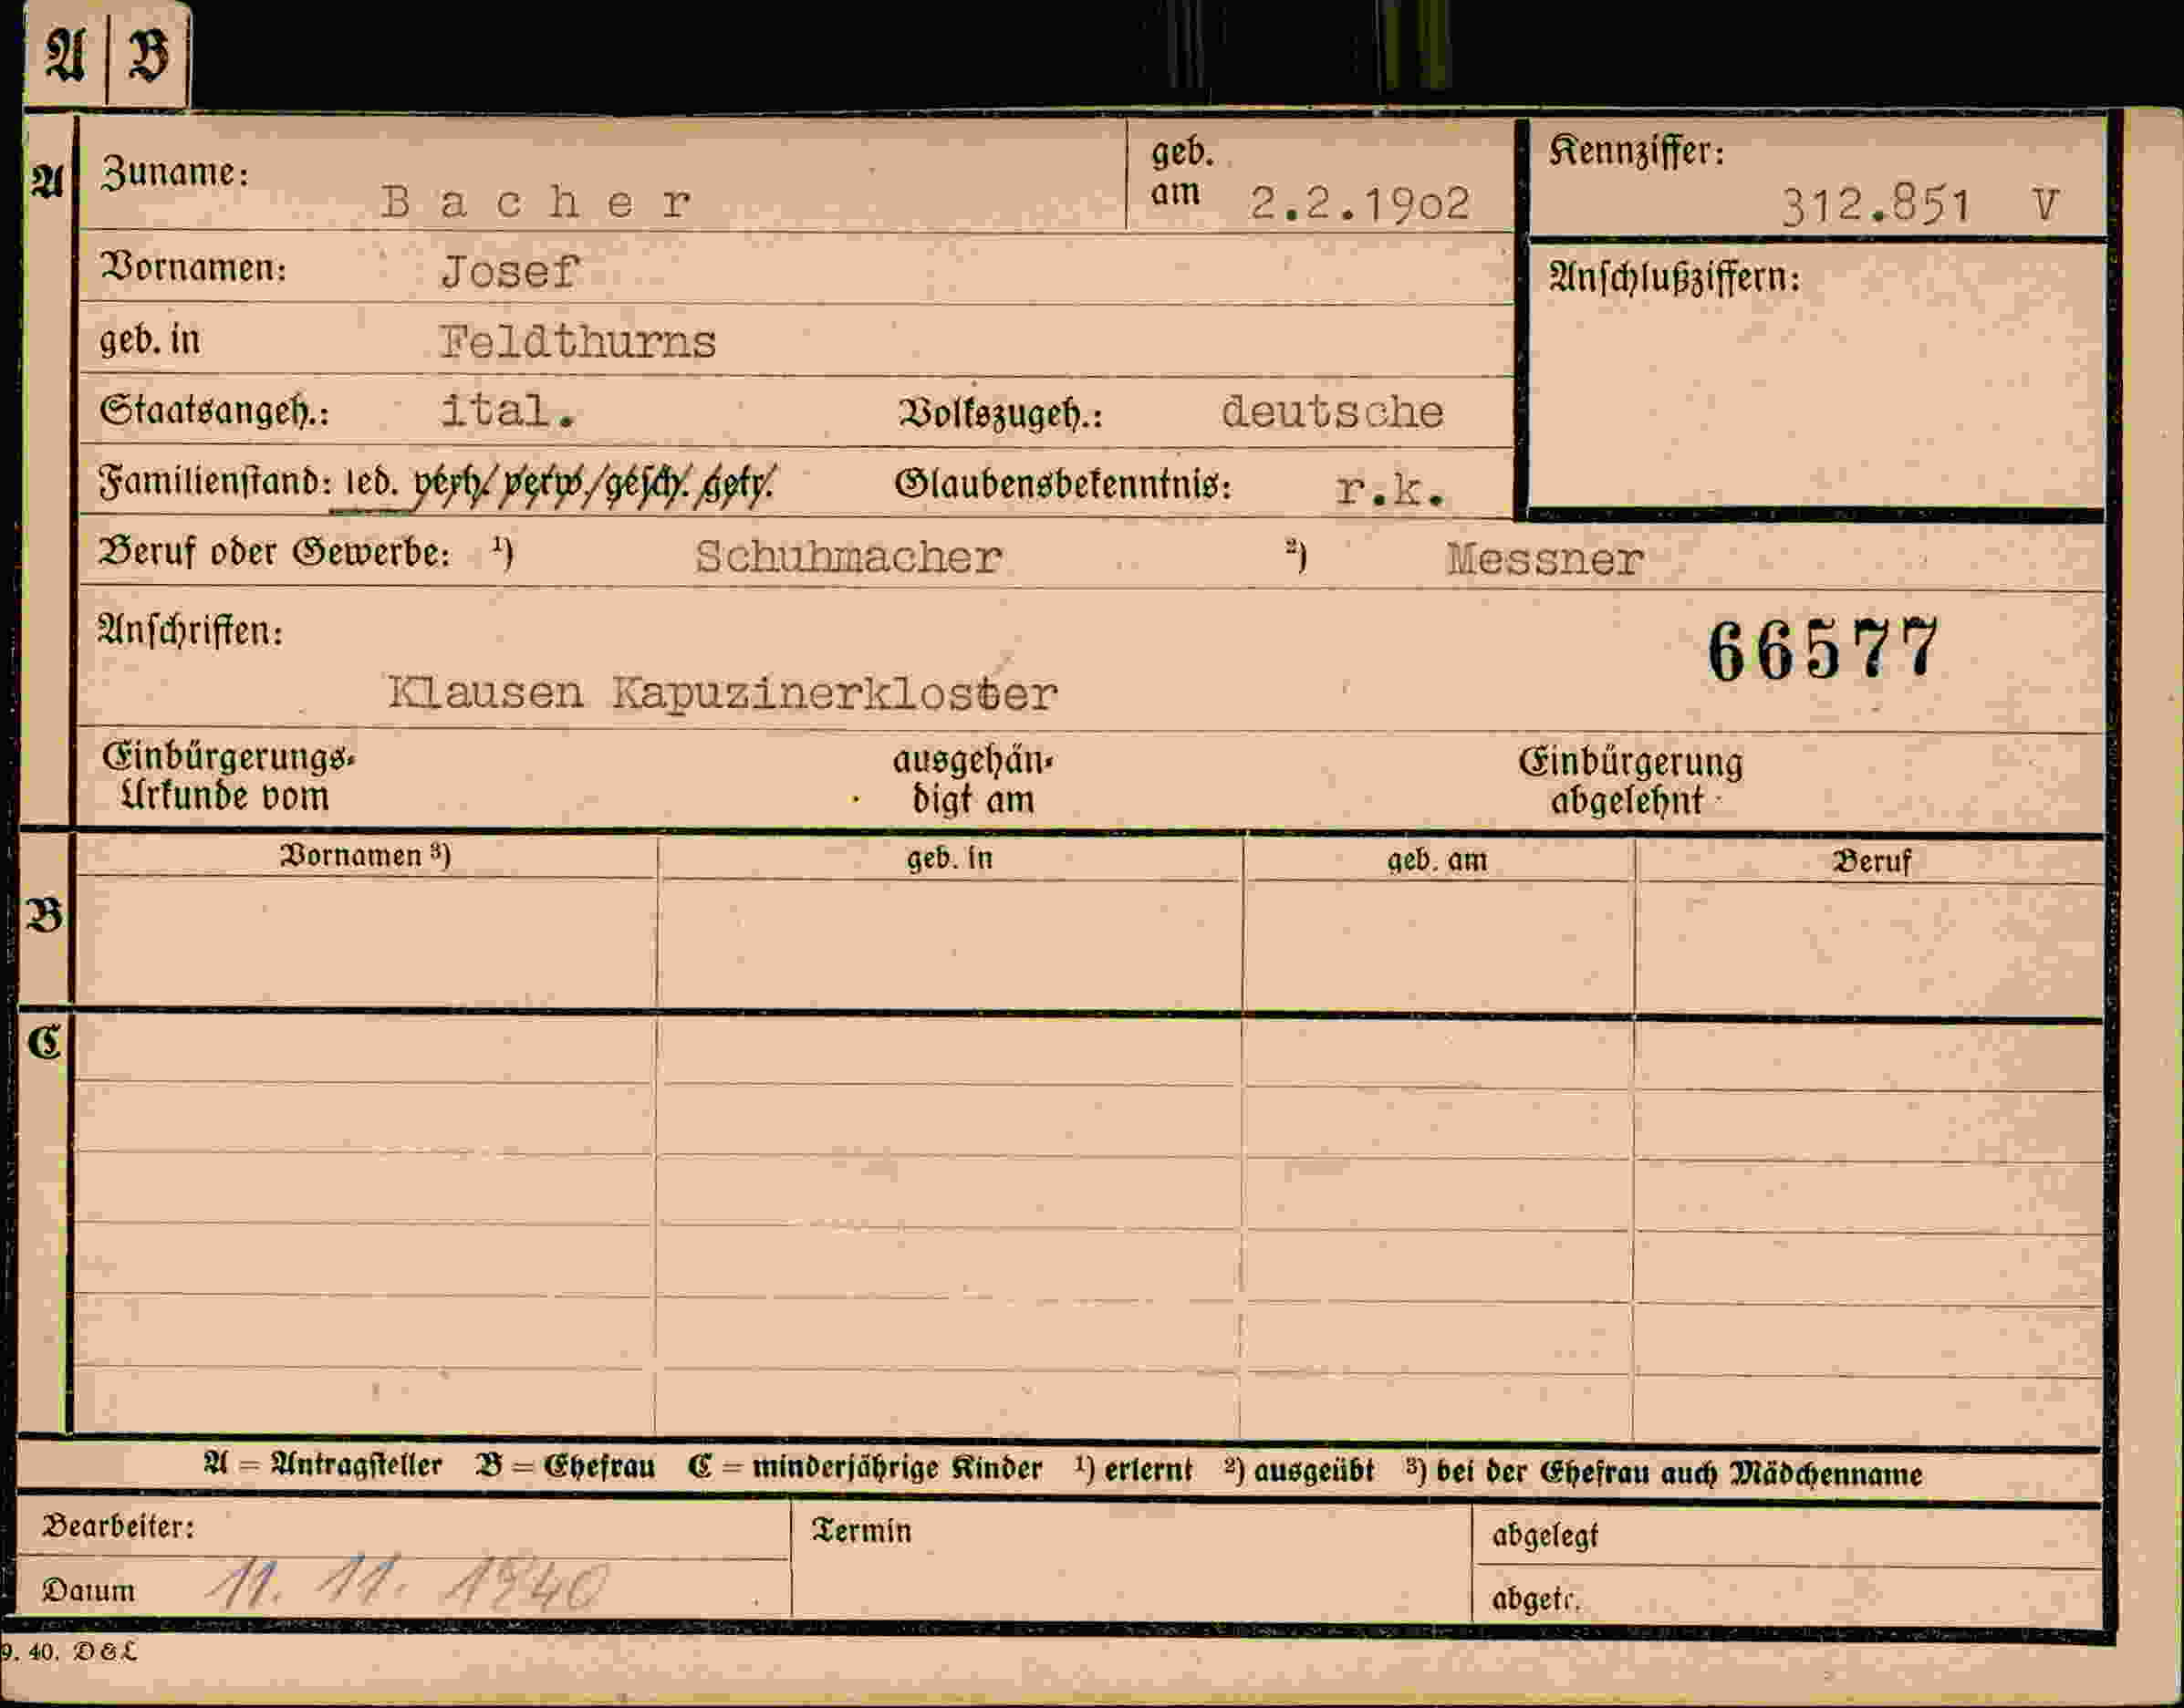 A B
A Zuname: Bacher geb. am 2.2.1902 Kennziffer: 312.851 V
Vornamen: Josef Anschlußziffern:
geb. in Feldthurns
Staatsangeh.: ital. Volkszugeh.: deutsche
Familienstand: led. verh./verw./gesch. getr. Glaubensbekenntnis: r.k.
Beruf oder Gewerbe: ¹) Schuhmacher ²) Messner
Anschriften: 66577
Klausen Kapuzinerkloster
Einbürgerungs- ausgehän- Einbürgerung
Urkunde vom digt am abgelehnt
Vornamen ³) geb. in geb. am Beruf
B
C
A = Antragsteller B = Ehefrau C = minderjährige Kinder ¹) erlernt ²) ausgeübt ³) bei der Ehefrau auch Mädchenname
Bearbeiter: Termin abgelegt
Datum 11. 11. 1940 abgetr.
9. 40. D&L